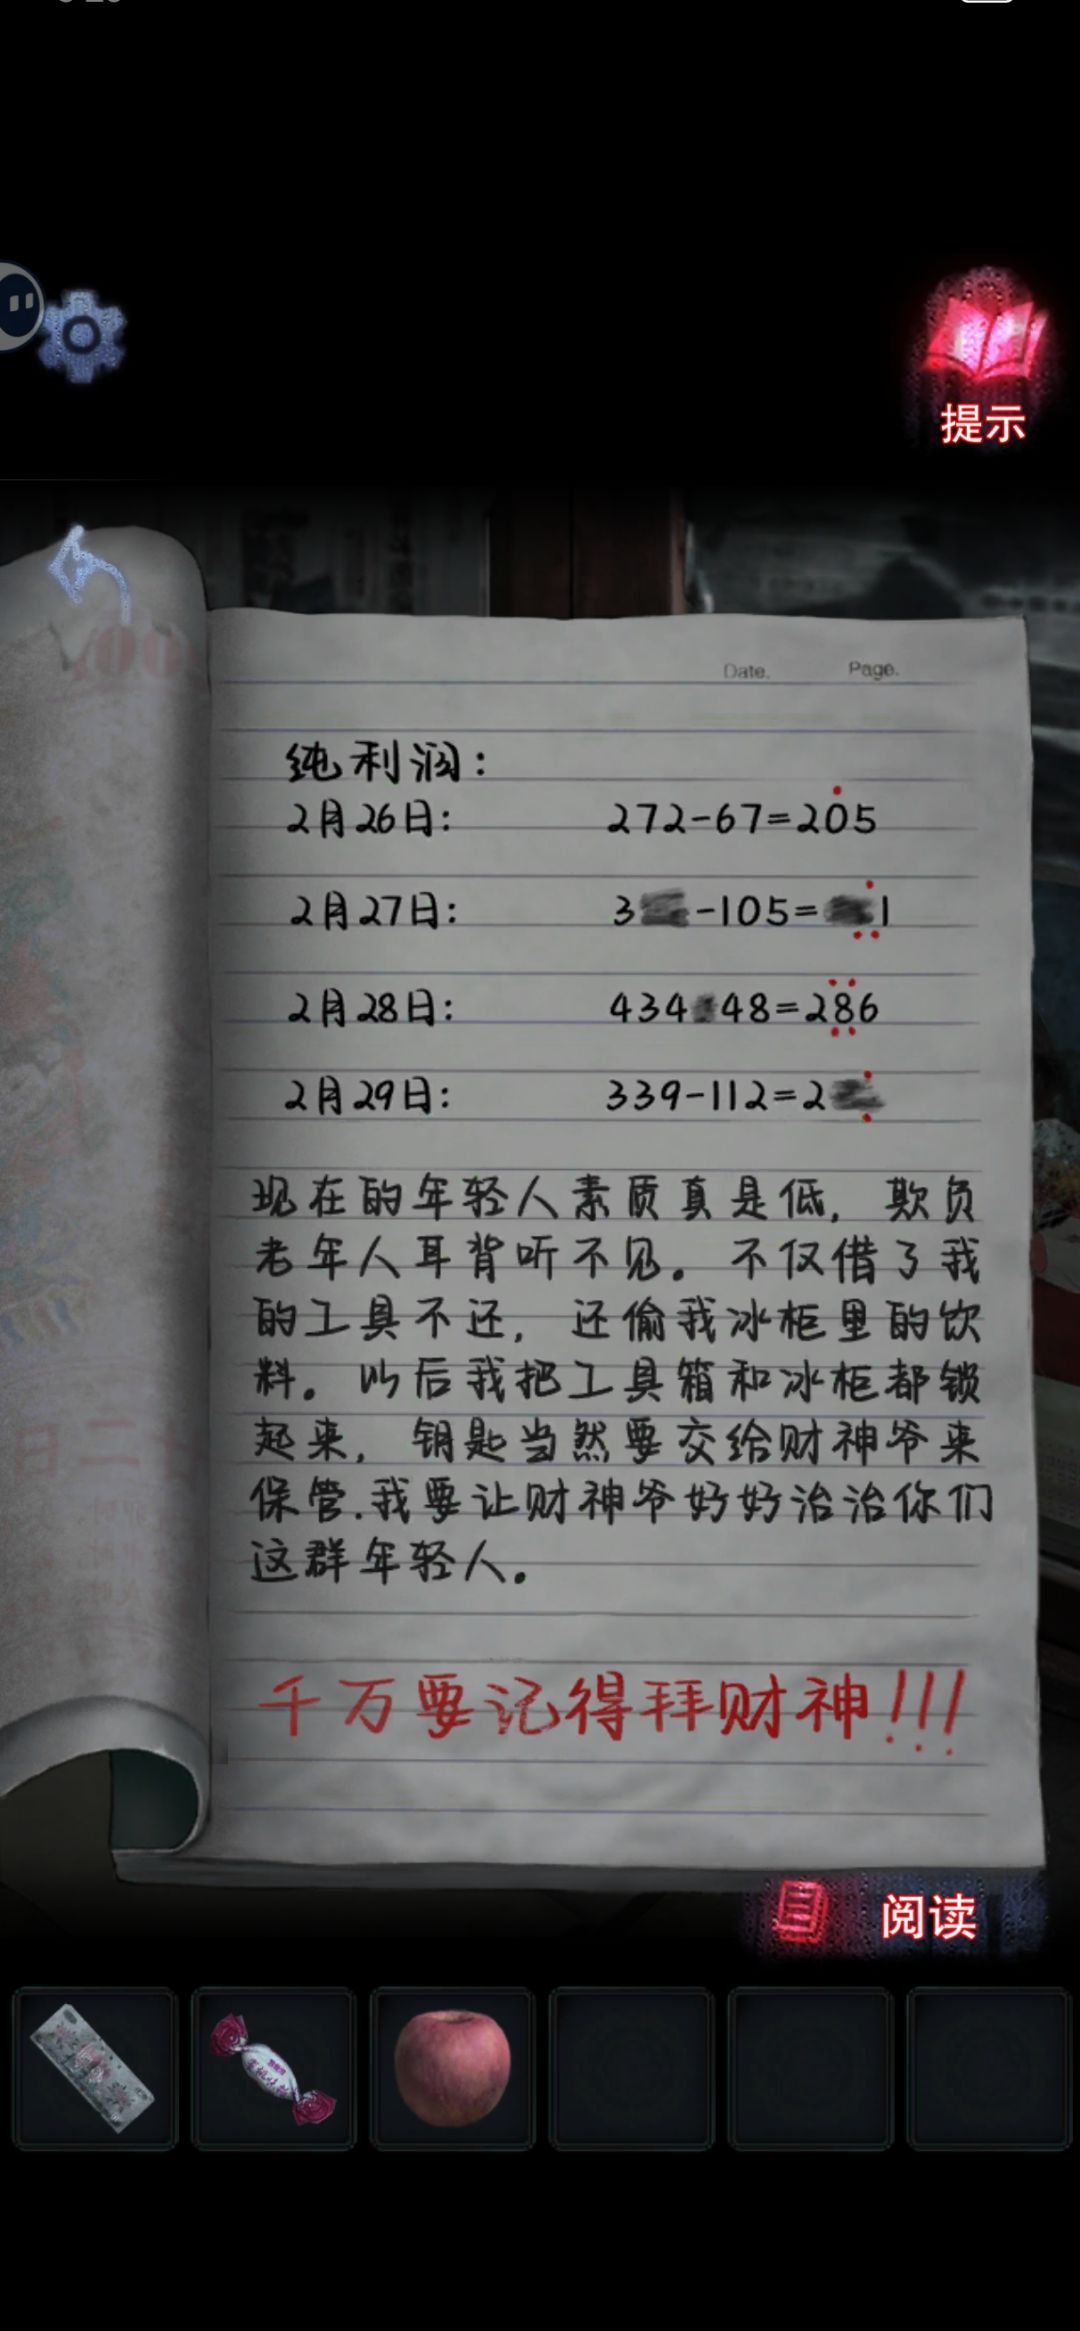 提示
Date. Page.
纯利润:
2月26日: 272-67=205
2月27日: 3 -105= 1
2月28日: 434 48=286
2月29日: 339-112=2
现在的年轻人素质真是低, 欺负
老年人耳背听不见。不仅借了我
的工具不还, 还偷我冰柜里的饮
料。以后我把工具箱和冰柜都锁
起来, 钥匙当然要交给财神爷来
保管.我要让财神爷好好治治你们
这群年轻人。
千万要记得拜财神!!!
阅读